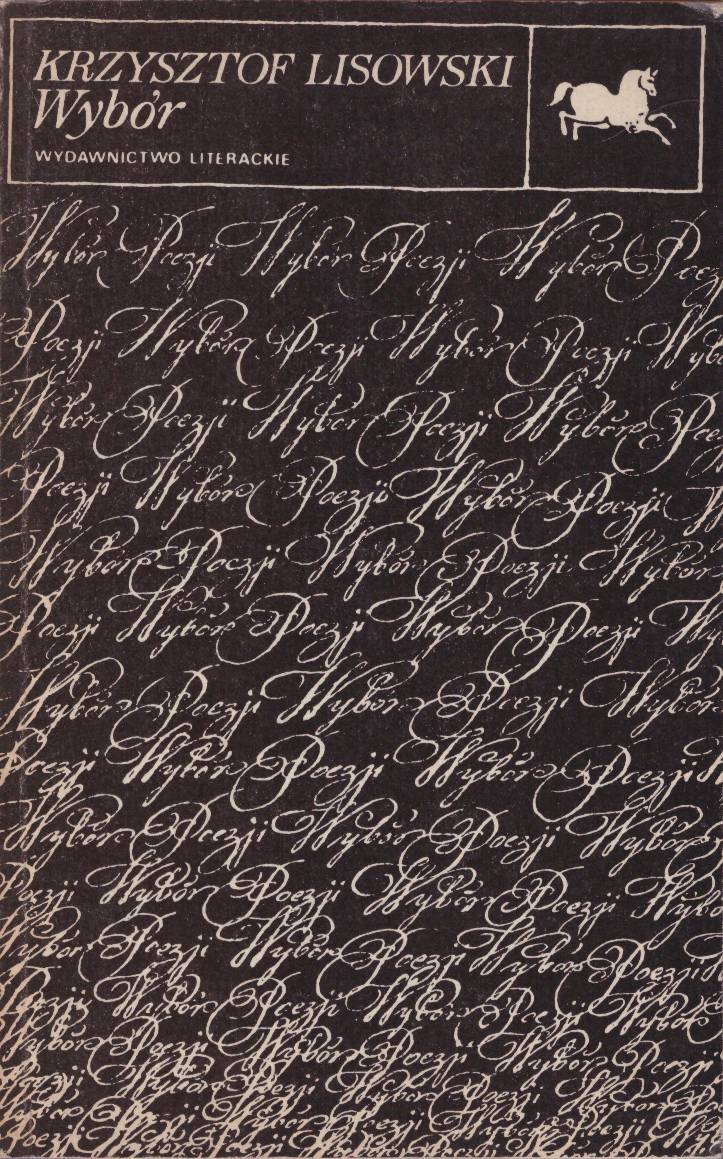 KRZYSZTOF LISOWSKI
Wybór
WYDAWNICTWO LITERACKIE
Wybór Poezji Wybór Poezji Wybór Poezji
Poezji Wybór Poezji Wybór Poezji Wyb
Wybór Poezji Wybór Poezji Wybór Poe
Poezji Wybór Poezji Wybór Poezji W
Wybór Poezji Wybór Poezji Wybór
Poezji Wybór Poezji Wybór Poezji Wy
Wybór Poezji Wybór Poezji Wybór
Poezji Wybór Poezji Wybór Poezji W
Wybór Poezji Wybór Poezji Wybór
Poezji Wybór Poezji Wybór Poezji Wybó
Wybór Poezji Wybór Poezji Wybór Poezji
Poezji Wybór Poezji Wybór Poezji Wybór
Wybór Poezji Wybór Poezji Wybór Poezji
Poezji Wybór Poezji Wybór Poezji Wybór Po
Wybór Poezji Wybór Poezji Wybór Poezji
Poezji Wybór Poezji Wybór Poezji Wybór